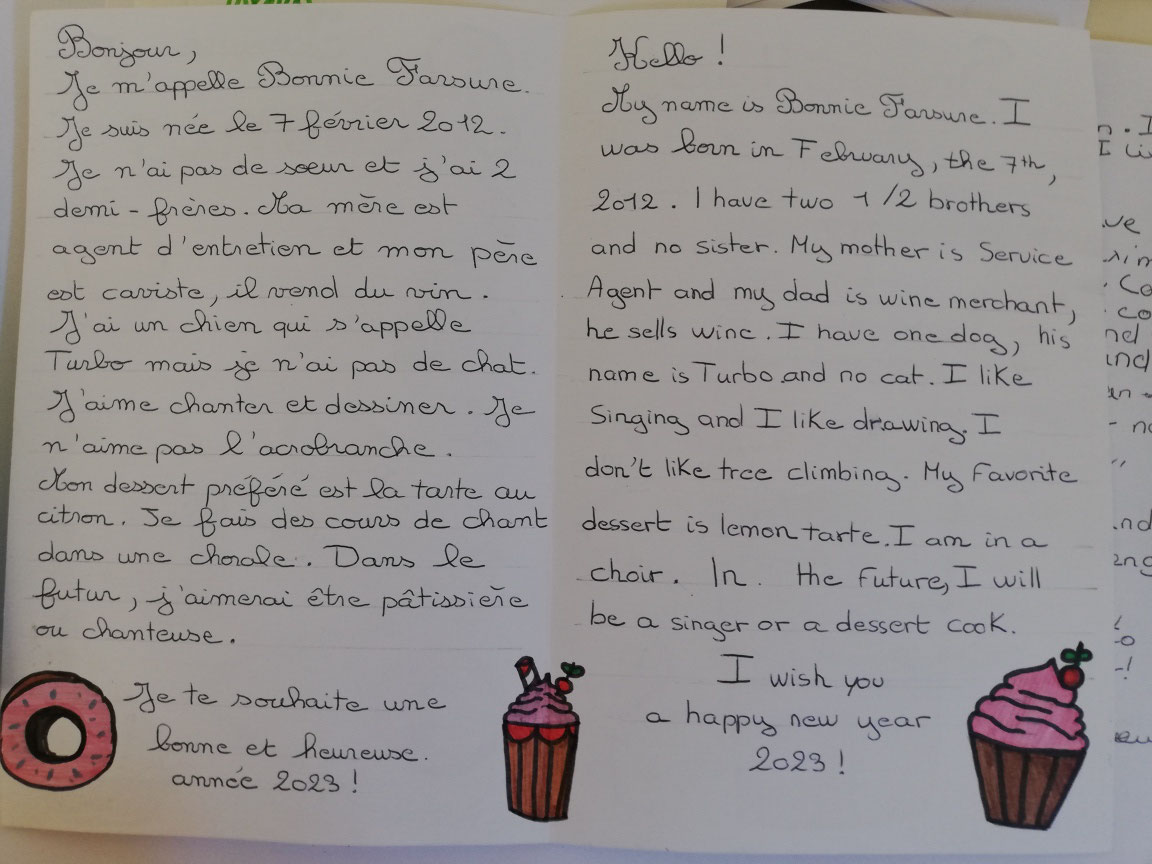 Bonjour,
Je m'appelle Bonnie Farsure.
Je suis née le 7 février 2012.
Je n'ai pas de sœur et j'ai 2
demi-frères. Ma mère est
agent d'entretien et mon père
est caviste, il vend du vin.
J'ai un chien qui s'appelle
Turbo mais je n'ai pas de chat.
J'aime chanter et dessiner. Je
n'aime pas l'acrobranche.
Mon dessert préféré est la tarte au
citron. Je fais des cours de chant
dans une chorale. Dans le
futur, j'aimerai être pâtissière
ou chanteuse.
Je te souhaite une
bonne et heureuse.
année 2023 !
Hello !
My name is Bonnie Farsure. I
was born in February, the 7th,
2012. I have two 1/2 brothers
and no sister. My mother is Service
Agent and my dad is wine merchant,
he sells wine. I have one dog, his
name is Turbo.and no cat. I like
Singing and I like drawing. I
don't like tree climbing. My Favorite
dessert is lemon tarte. I am in a
choir. In. the Future, I will
be a singer or a dessert cook.
I wish you
a happy new year
2023 !